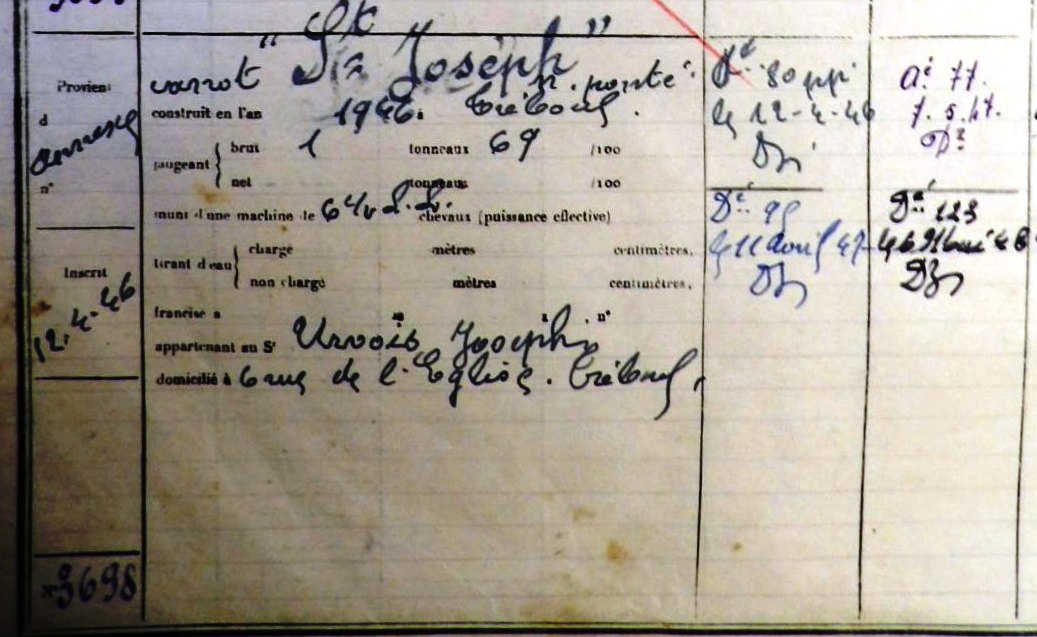 Provient
d
annexe
n°
Inscrit
12.4.46
N° 3698
" St Joseph "
canot n. ponté
construit en l'an 1946. Tréboul.
jaugeant { brut 1 tonneaux 69 /100
net tonneaux /100
muni d'une machine de 6 chevaux (puissance effective)
tirant d'eau { charge mètres centimètres.
non chargé mètres centimètres.
francisé à , n°
appartenant au Sr Urvois Joseph
domicilié à 6 rue de l'Eglise. Tréboul,
80
12-4-46
95
11 avril 47
77.
7.5.47.
123
48